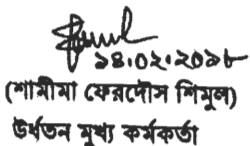 ১৪.০২.২০১৮
(শামীমা ফেরদৌস শিমুল)
উর্ধতন মুখ্য কর্মকর্তা